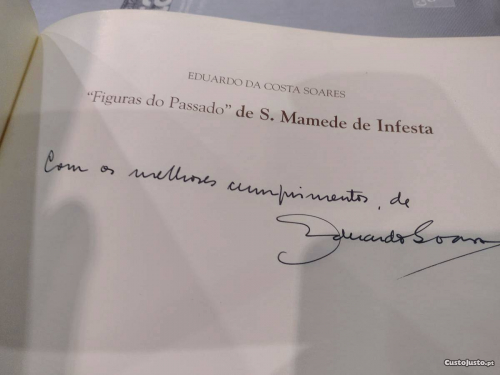 EDUARDO DA COSTA SOARES
"Figuras do Passado" de S. Mamede de Infesta
Com os melhores cumprimentos, de
Eduardo Soares
CustoJusto.pt